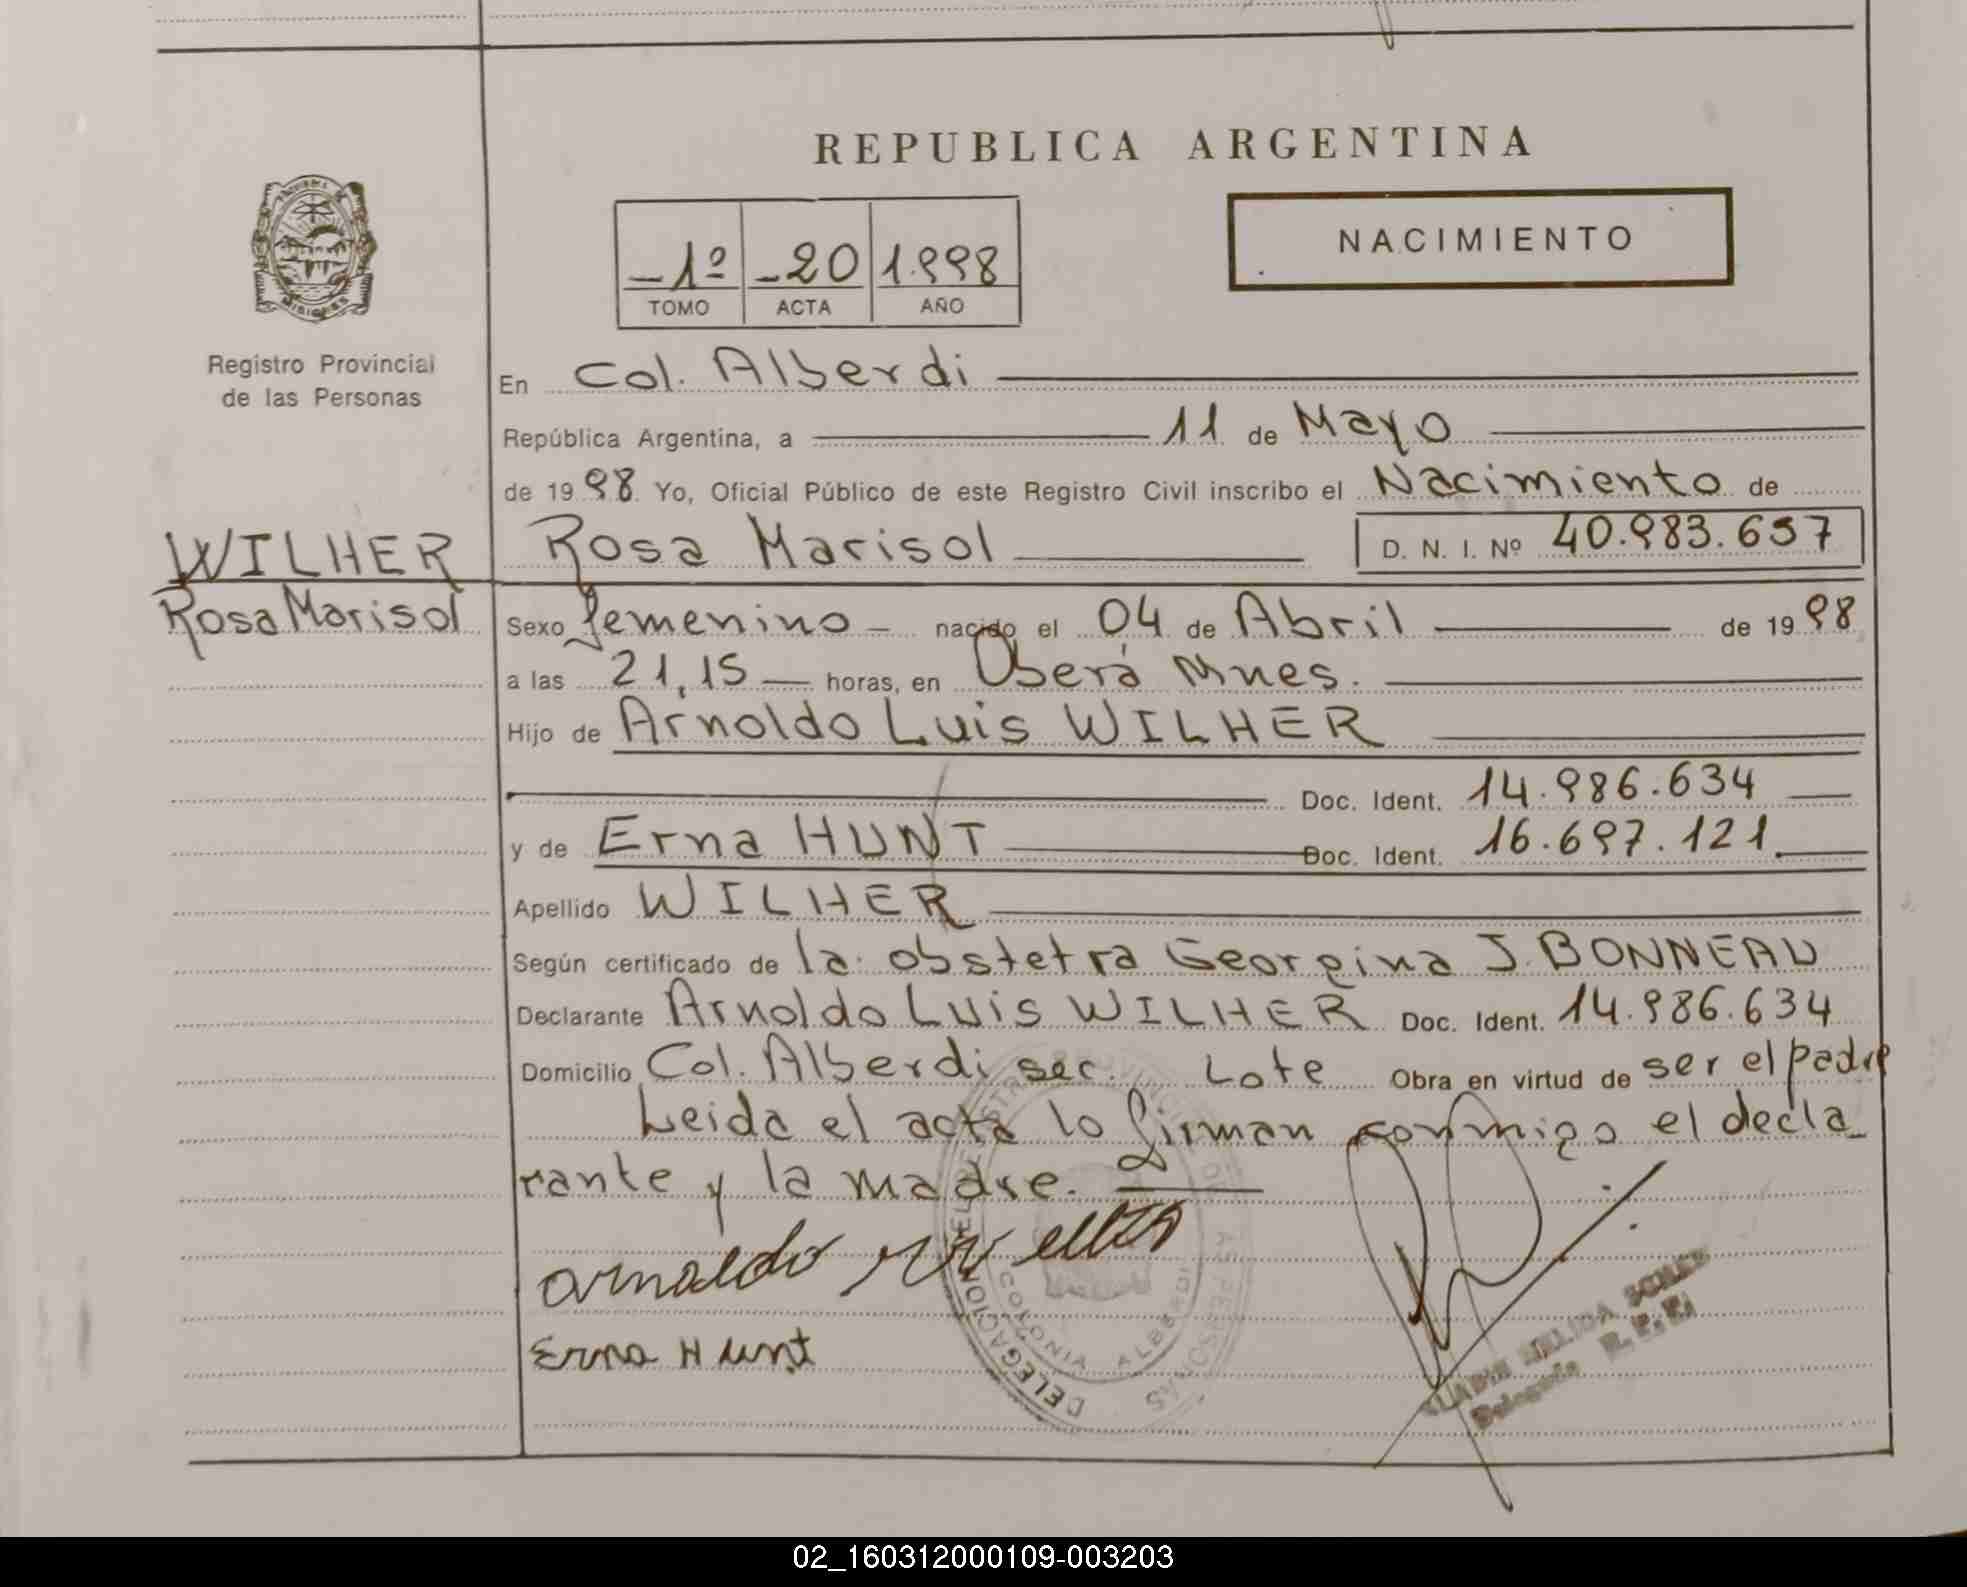 REPUBLICA ARGENTINA
NACIMIENTO
-1º -20 1.998
TOMO ACTA AÑO
MISIONES
Registro Provincial
de las Personas
En Col. Alberdi
República Argentina, a 11 de Mayo
de 19 98 Yo, Oficial Público de este Registro Civil inscribo el Nacimiento de
WILHER
Rosa Marisol
Rosa Marisol D. N. I. Nº 40.983.657
Sexo femenino nacido el 04 de Abril de 19 98
a las 21,15 horas, en Oberá Mnes.
Hijo de Arnoldo Luis WILHER
Doc. Ident. 14.986.634
y de Erna HUNT Doc. Ident. 16.697.121
Apellido WILHER
Según certificado de la obstetra Georgina J. BONNEAU
Declarante Arnoldo Luis WILHER Doc. Ident. 14.986.634
Domicilio Col. Alberdi sec. Lote Obra en virtud de ser el padre
Leida el acta lo firman conmigo el decla
rante y la madre.
arnoldo
Erna Hunt
DELEGACION DEL REGISTRO PROVINCIAL DE LAS PERSONAS
COLONIA ALBERDI
NELIDA
Delegada R. P. P.
02_160312000109-003203